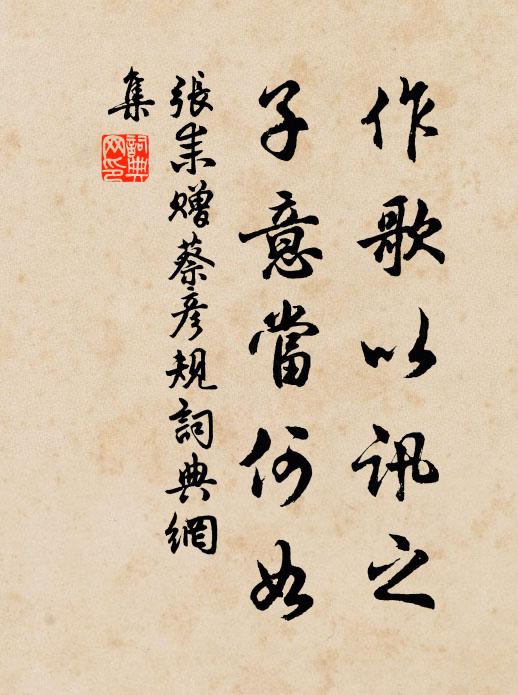 作歌以訊之
子意當何如
張耒贈蔡彥規詞典網
集
詞典
网印